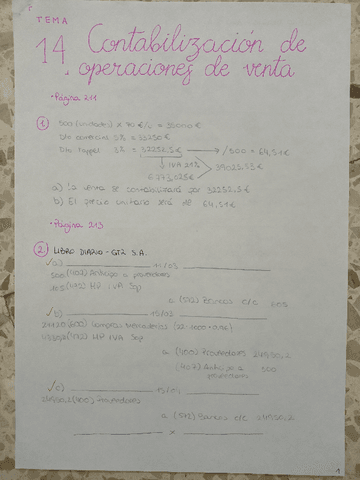 TEMA
14 Contabilización de
operaciones de venta
· Página 211
1 500 (unidades) x 70 €/u = 35000 €
Dto comercial 5% = 33250 €
Dto rappel 3% = 32252,5 € 7 / 500 = 64,51 €
↓ IVA 21%
6.773,025 €
a) La venta se contabilizará por 32252,5 €
b) El precio unitario será de 64,51 €
· Página 213
2 LIBRO DIARIO - GT2 S.A.
✓ a) 11/03
500 (407) Anticipo a proveedores
105 (472) HP IVA Sop
a (572) Bancos c/c 605
✓ b)
(600) Compras Mercaderías
HP IVA Sop
a (400) Proveedores
(407) Anticipo a 500
proveedores
✓ c) 15/03
(400) Proveedores
a (572) Bancos c/c
x
1